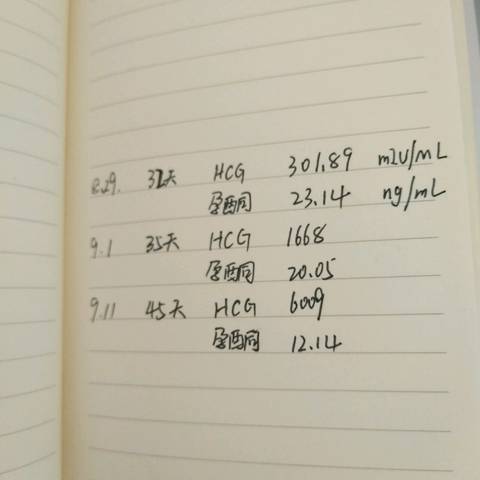 8.29. 32天 HCG 301.89 mIU/mL
孕酮 23.14 ng/mL
9.1 35天 HCG 1668
孕酮 20.05
9.11 45天 HCG 6009
孕酮 12.14